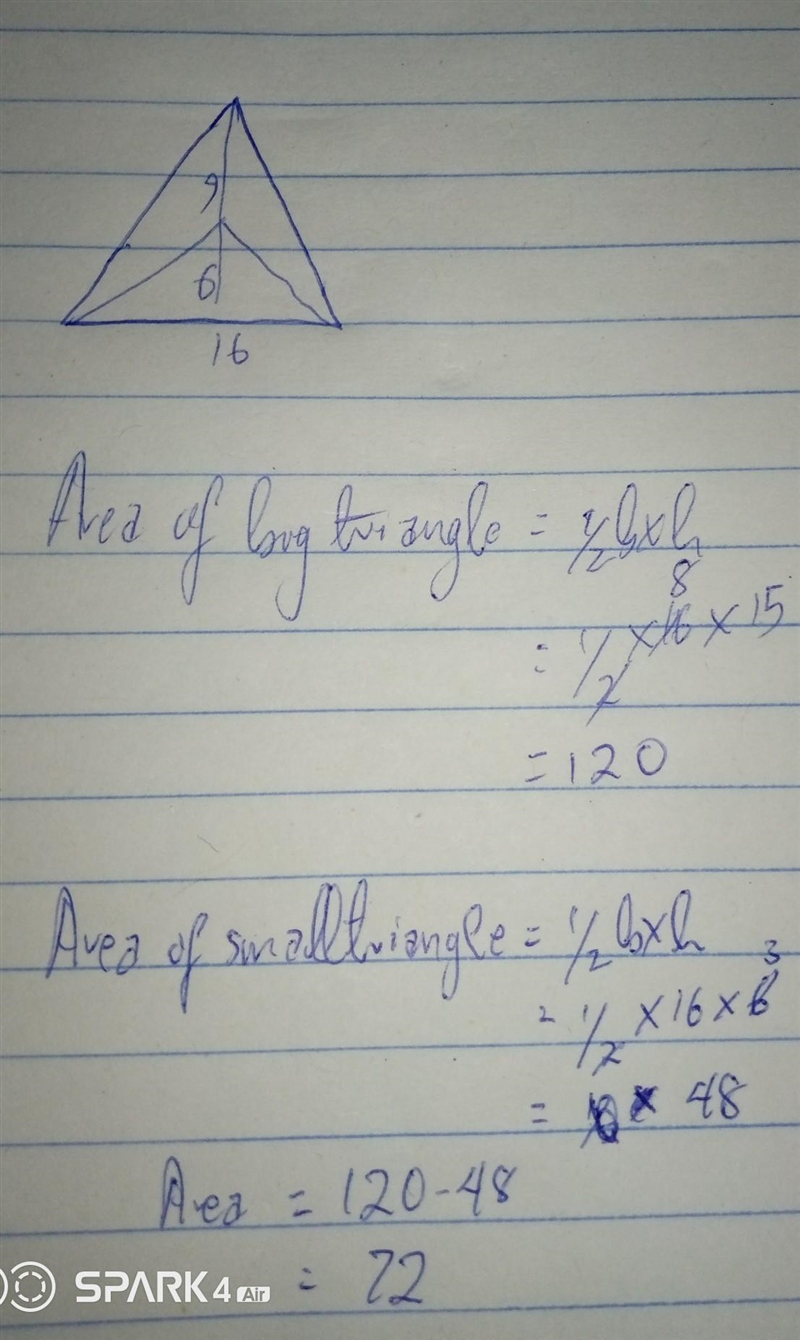 9
6
16
Area of big triangle = 1/2 b x h
= 1/2 x 16 x 15
8
= 120
Area of small triangle = 1/2 b x h
= 1/2 x 16 x 6
3
= 48
Area = 120 - 48
= 72
SPARK 4 Air